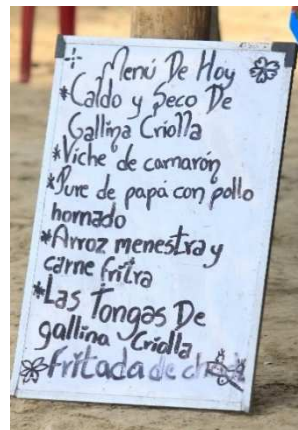 Menú De Hoy
*Caldo y Seco De
Gallina Criolla
*Viche de camarón
*Pure de papá con pollo
hornado
*Arroz menestra y
carne fritra
*Las Tongas De
gallina Criolla
Fritada de